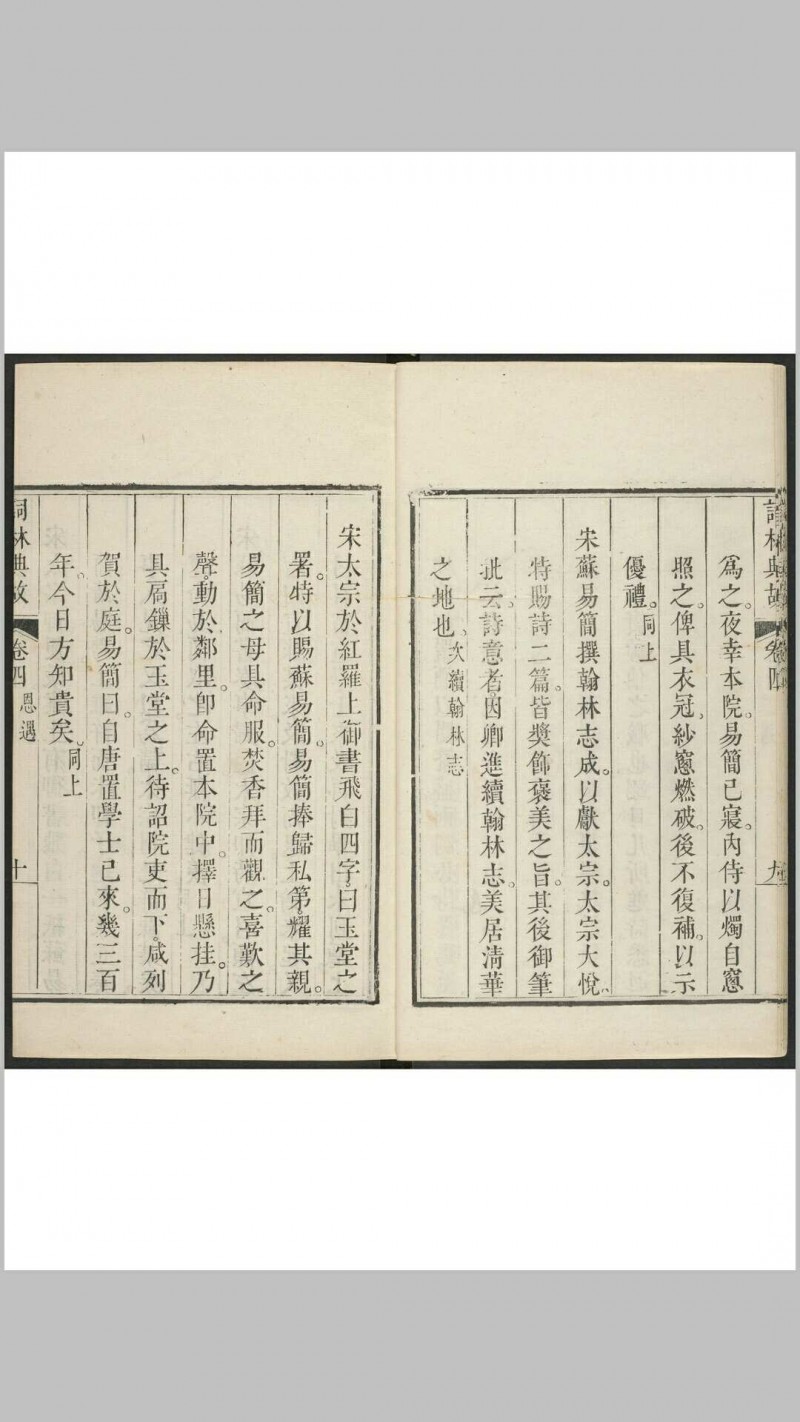 詞林典故 卷四 九
爲之。夜幸本院。易簡已寢。內侍以燭自窻
照之。俾具衣冠。紗窻燃破。後不復補。以示
優禮。同上
宋蘇易簡撰翰林志成。以獻太宗。太宗大悅。
特賜詩二篇。皆奬飾褒美之旨。其後御筆
批云。詩意者。因卿進續翰林志。美居淸華
之地也。次續翰林志
宋太宗於紅羅上御書飛白四字。曰玉堂之
署。特以賜蘇易簡。易簡捧歸私第。耀其親。
易簡之母具命服。焚香拜而觀之。喜歎之
聲。動於鄰里。卽命置本院中。擇日懸挂。乃
具扃鐍於玉堂之上。待詔院吏而下。咸列
賀於庭。易簡曰。自唐置學士已來。幾三百
年。今日方知貴矣。同上
詞林典故 卷四 恩遇 十